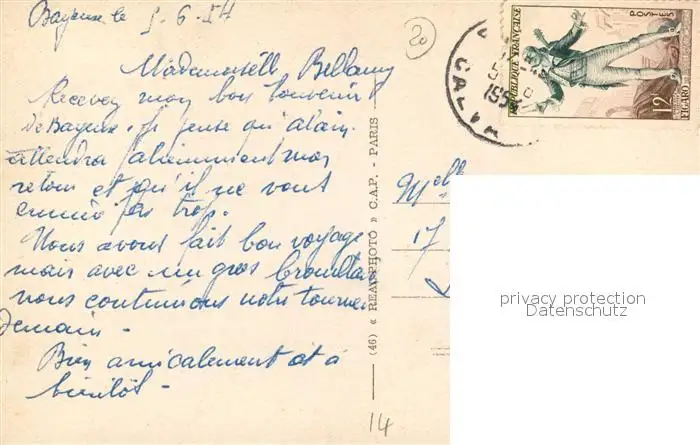 Bayeux le 5.6.54
Mademoiselle Bellamy
Recevez mon bon souvenir
de Bayeux. Je pense qu'alain
attendra mon
retour et qu'il ne vous
ennuie pas trop.
Nous avons fait bon voyage
mais avec un gros brouillard
nous continuons notre tournée
demain -
Bien amicalement et à
bientôt -
20
14
(46) « REAL-PHOTO » C.A.P. - PARIS
Melle
17
CALVA
POSTES
REPUBLIQUE FRANÇAISE
12F
FIGARO
privacy protection
Datenschutz